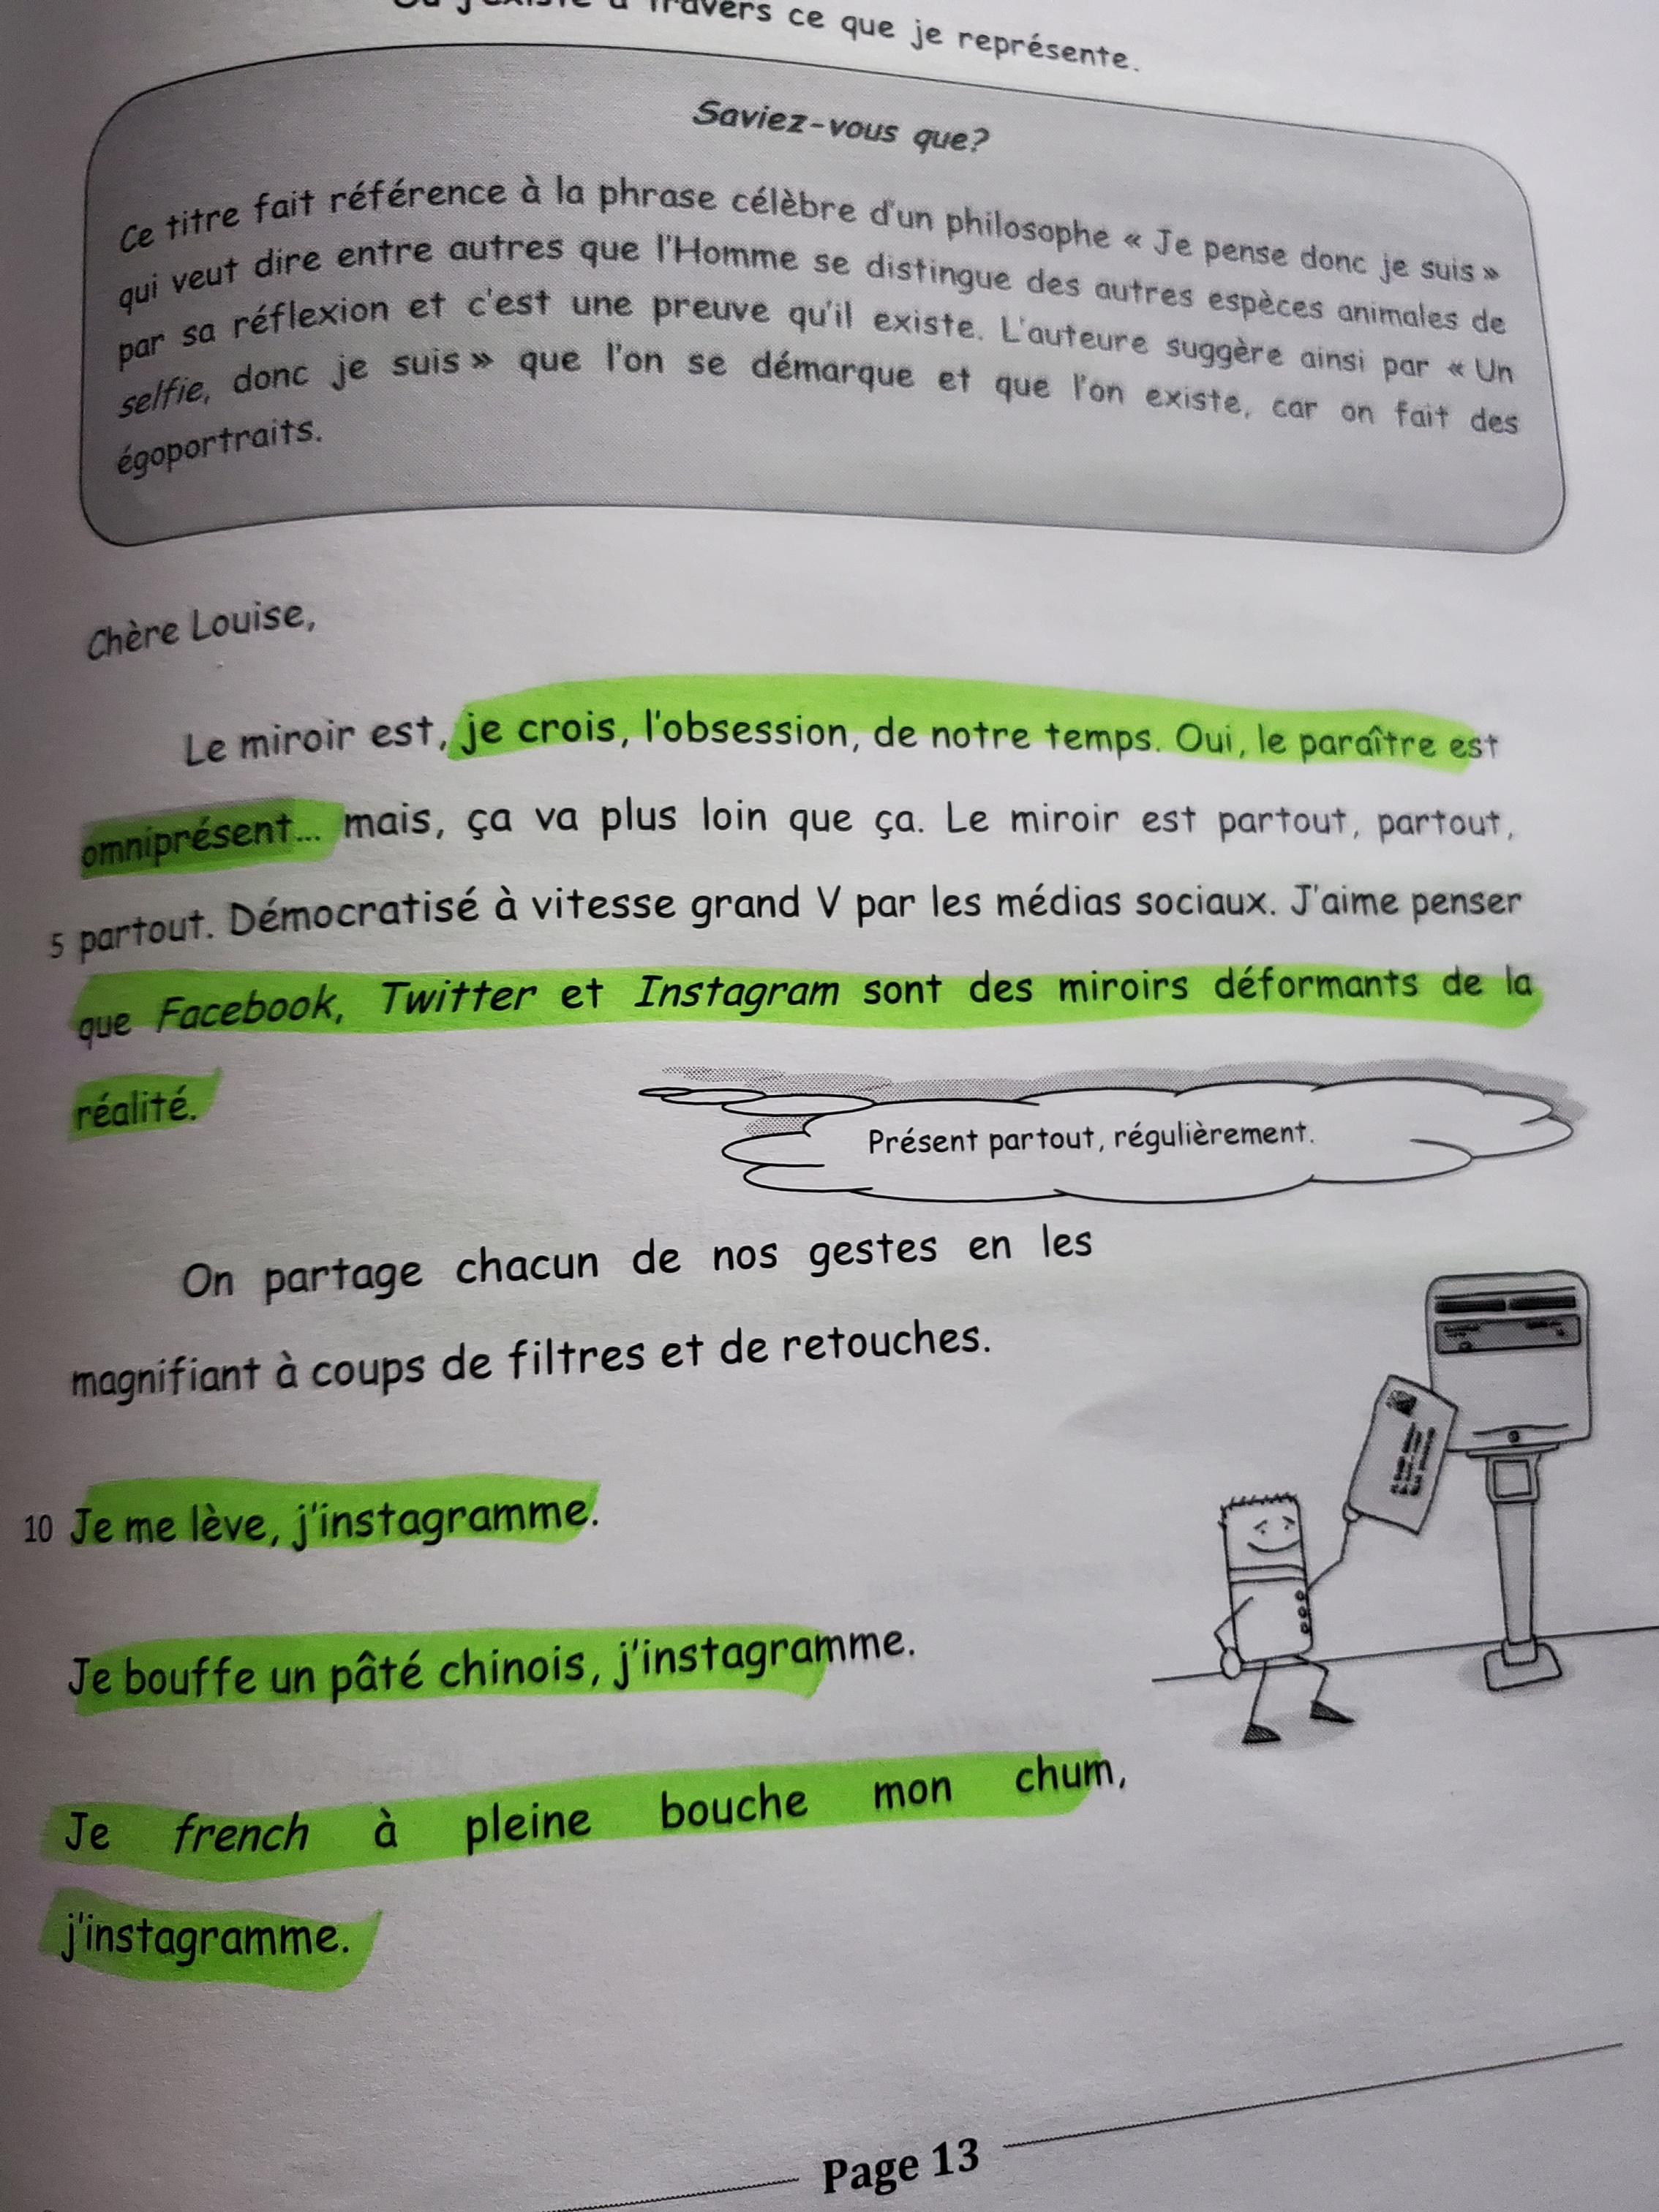 travers ce que je représente.
Saviez-vous que?
Ce titre fait référence à la phrase célèbre d'un philosophe « Je pense donc je suis »
qui veut dire entre autres que l'Homme se distingue des autres espèces animales de
par sa réflexion et c'est une preuve qu'il existe. L'auteure suggère ainsi par « Un
selfie, donc je suis » que l'on se démarque et que l'on existe, car on fait des
égoportraits.
Chère Louise,
Le miroir est, je crois, l'obsession, de notre temps. Oui, le paraître est
omniprésent... mais, ça va plus loin que ça. Le miroir est partout, partout,
5 partout. Démocratisé à vitesse grand V par les médias sociaux. J'aime penser
que Facebook, Twitter et Instagram sont des miroirs déformants de la
réalité.
Présent partout, régulièrement.
On partage chacun de nos gestes en les
magnifiant à coups de filtres et de retouches.
10 Je me lève, j'instagramme.
Je bouffe un pâté chinois, j'instagramme.
Je french à pleine bouche mon chum,
j'instagramme.
Page 13